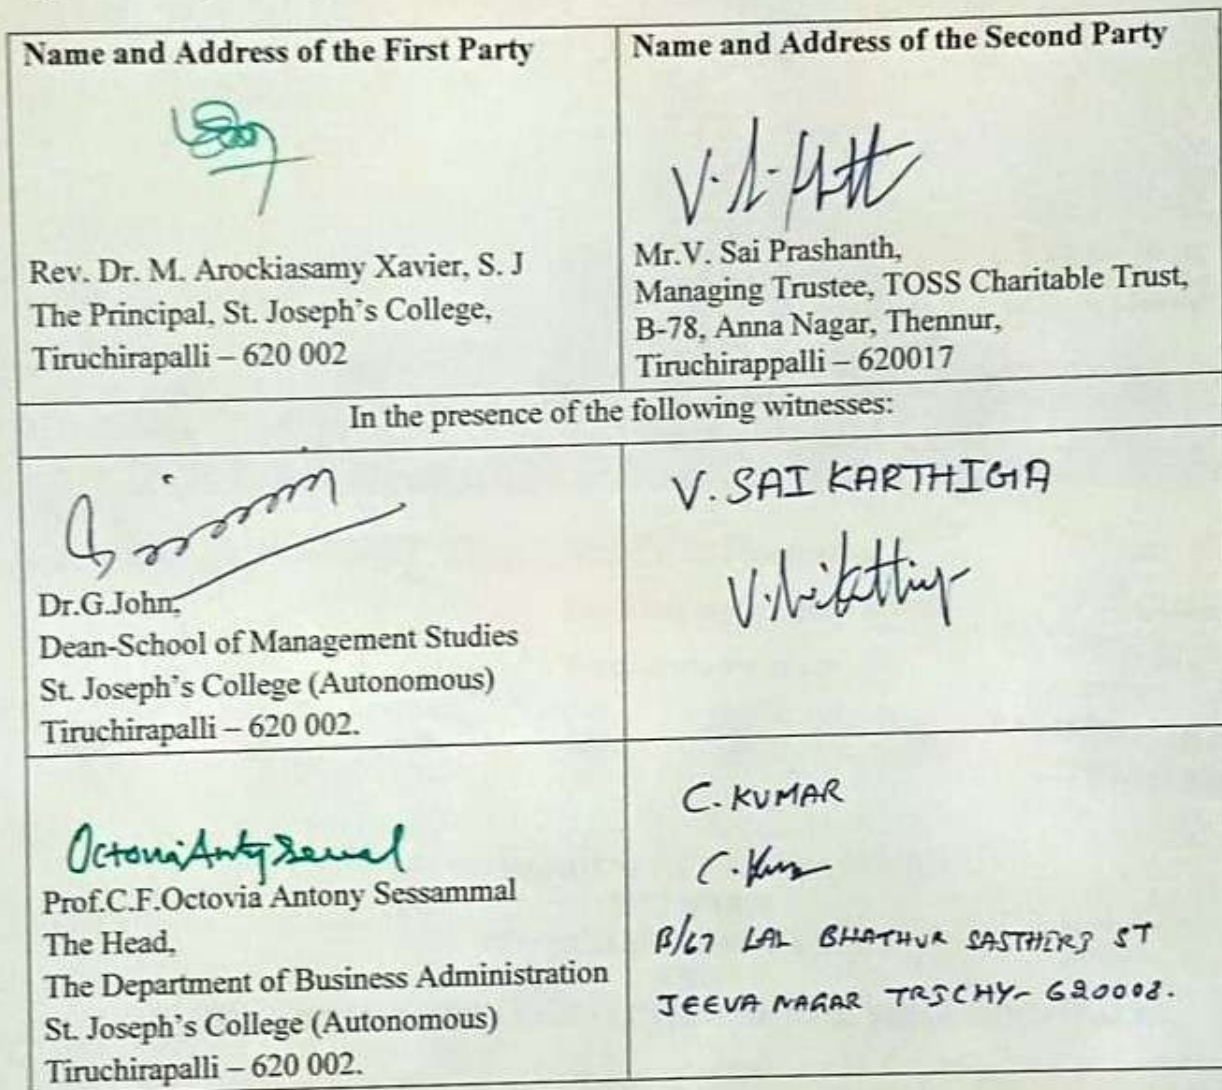 Name and Address of the First Party
Rev. Dr. M. Arockiasamy Xavier, S. J
The Principal, St. Joseph's College,
Tiruchirapalli – 620 002
Name and Address of the Second Party
Mr.V. Sai Prashanth,
Managing Trustee, TOSS Charitable Trust,
B-78, Anna Nagar, Thennur,
Tiruchirappalli – 620017
In the presence of the following witnesses:
Dr.G.John,
Dean-School of Management Studies
St. Joseph's College (Autonomous)
Tiruchirapalli – 620 002.
V. SAI KARTHIGA
Prof.C.F.Octovia Antony Sessammal
The Head,
The Department of Business Administration
St. Joseph's College (Autonomous)
Tiruchirapalli – 620 002.
C. KUMAR
B/67 LAL BHATHUR SASTHERI ST
JEEVA NAGAR TRICHY- 620008.